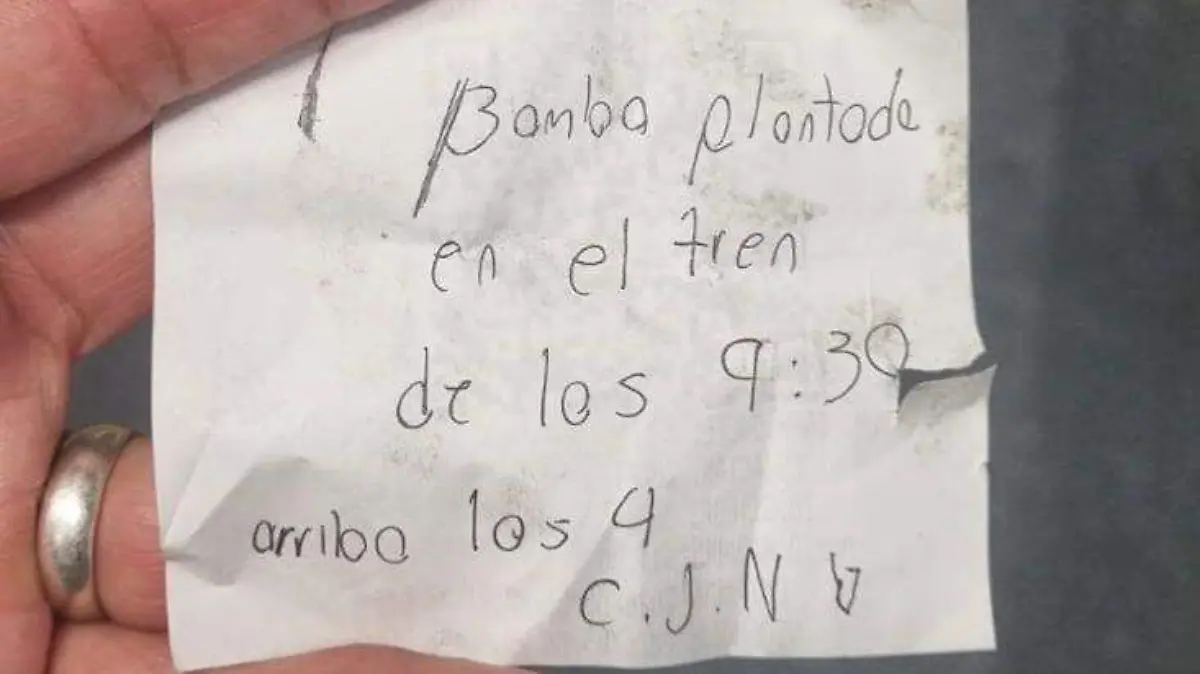 Bomba plantada
en el tren
de las 9:30
arriba los 4
C.J.N